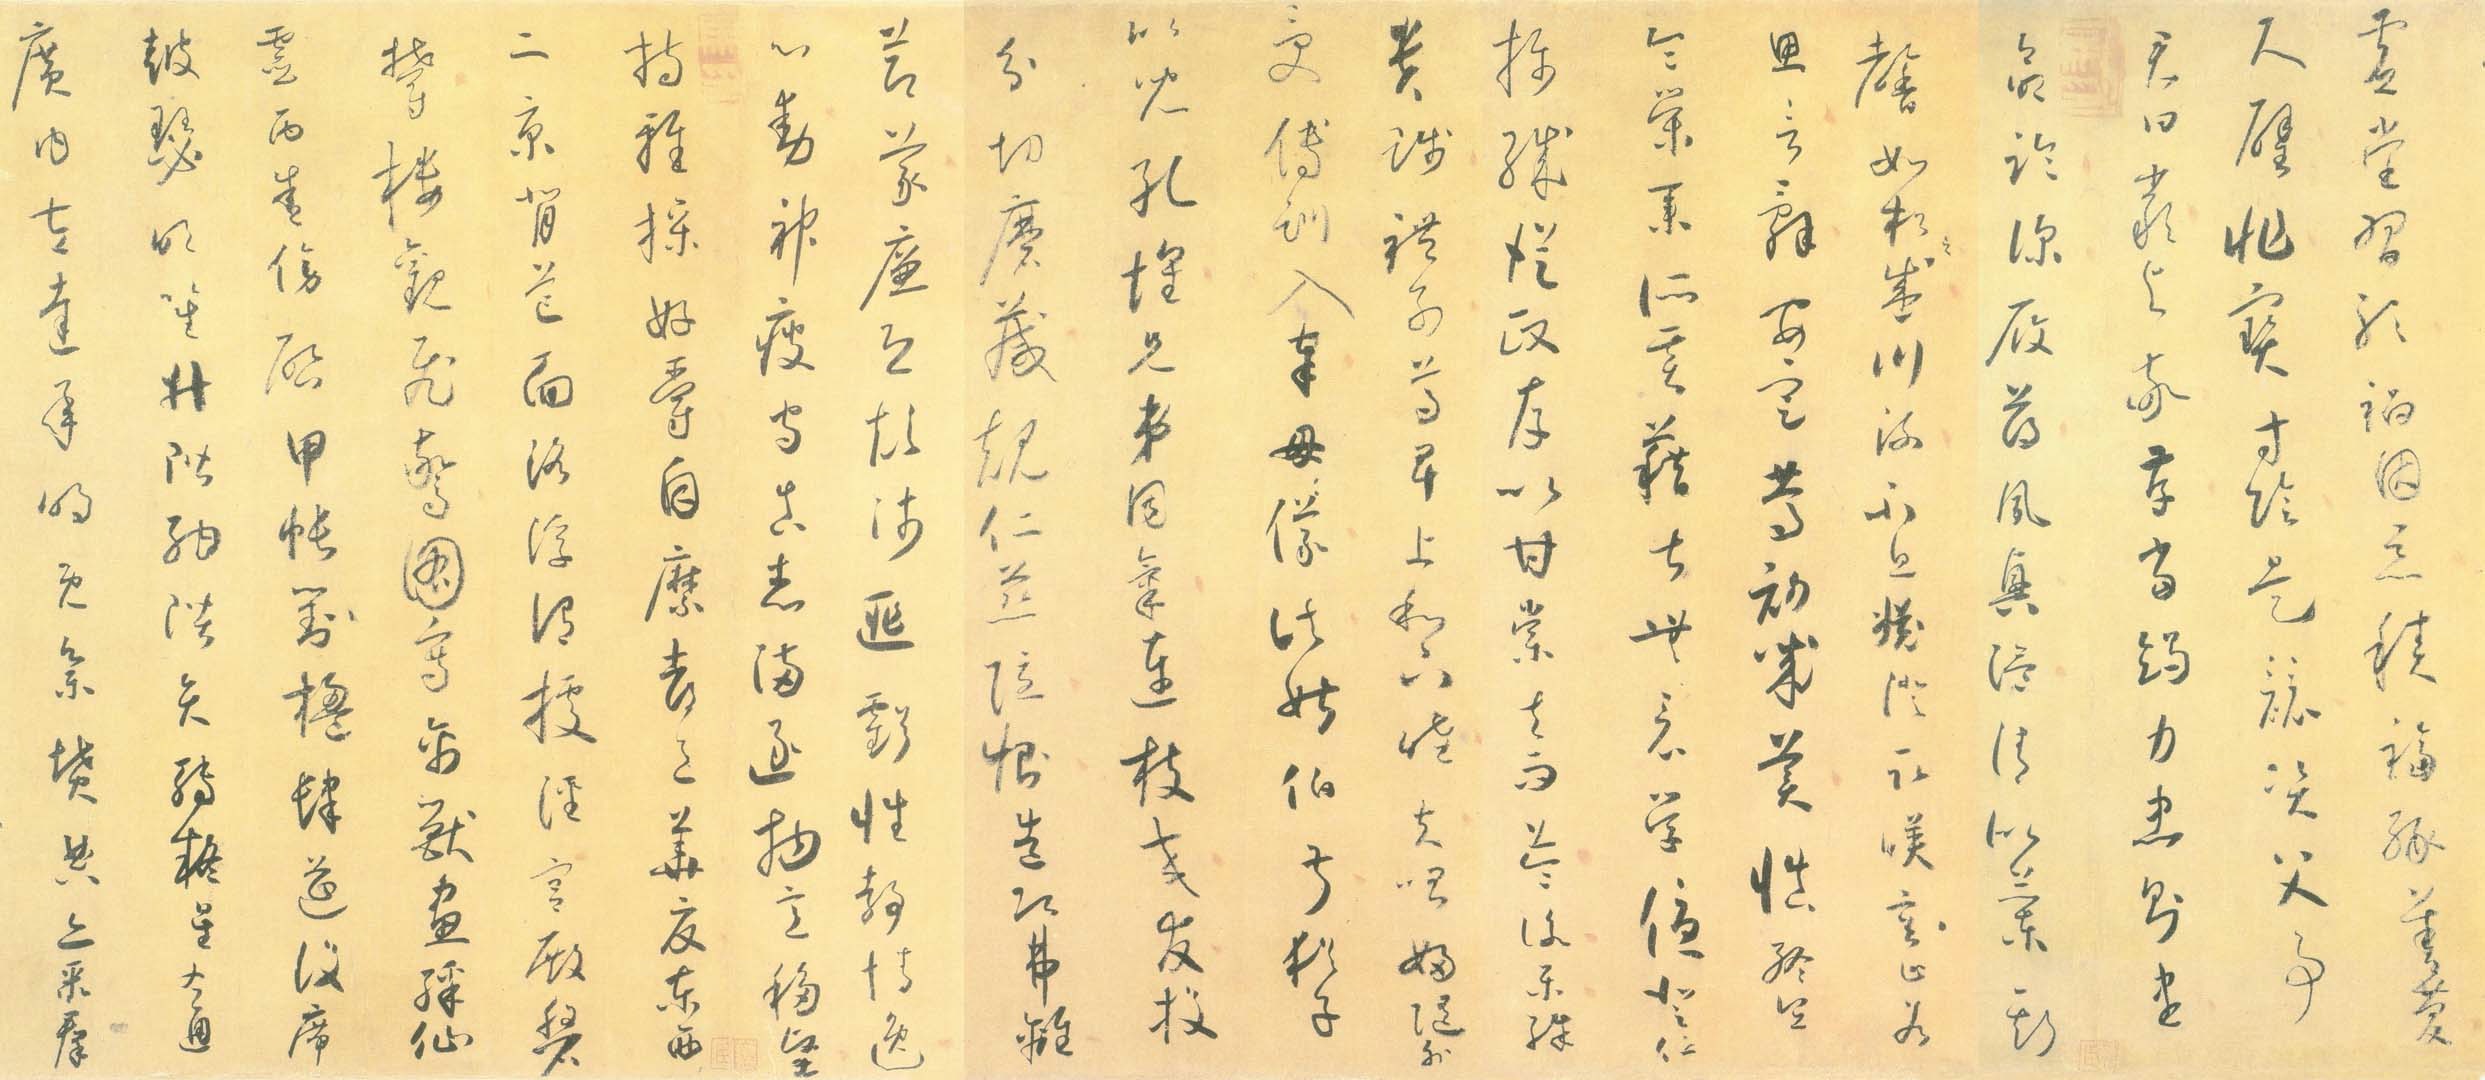 虛堂習聽禍因惡積福緣善慶
尺璧非寶寸陰是競資父事
君曰嚴與敬孝當竭力忠則盡
命臨深履薄夙興溫清似蘭斯
馨如松之盛川流不息淵澄取暎容止若
思言辭安定篤初誠美慎終宜
令榮業所基藉甚無竟學優登仕
攝職從政存以甘棠去而益詠樂殊
貴賤禮別尊卑上和下睦夫唱婦隨外
受傅訓入奉母儀諸姑伯叔猶子
比兒孔懷兄弟同氣連枝交友投
分切磨箴規仁慈隱惻造次弗離
節義廉退顛沛匪虧性靜情逸
心動神疲守真志滿逐物意移堅
持雅操好爵自縻都邑華夏東西
二京背芒面洛浮渭據涇宮殿盤
鬱樓觀飛驚圖寫禽獸畫綵仙
靈丙舍傍啟甲帳對楹肆筵設席
鼓瑟吹笙升階納陛弁轉疑星右通
廣內左達承明既集墳典亦聚群